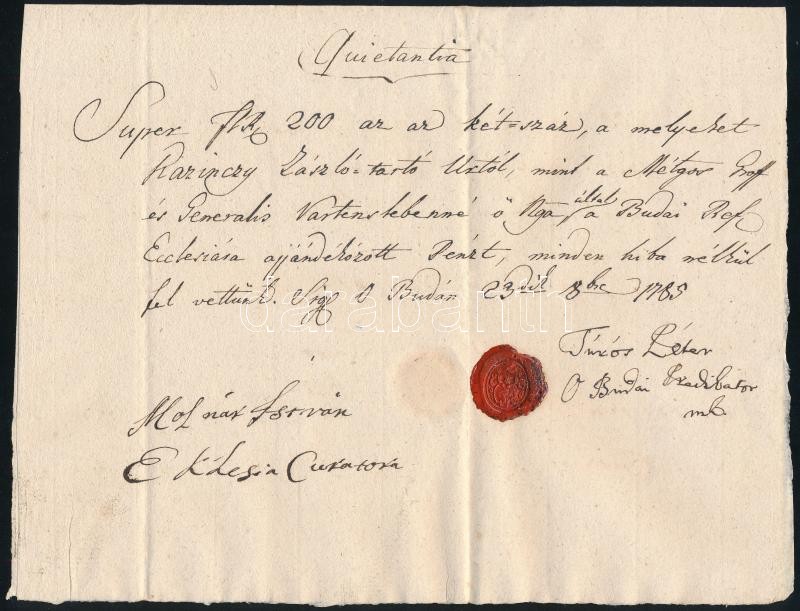 Quietantia
Super fR 200 az az két=száz, a melyeket
Kazinczy László=tartó Úrtól, mint a Méltgos Groff
és Generalis Vartenslebenné ő Nga által a Budai Ref.
Ecclesiása ajjándékozott Pénzt, minden hiba nélkül
fel vettünk. Sig. O Budán 23dik 8bre 1785
Túrós Péter
O Budai Predikator
mk
Molnár Istvánn
Eklesia Curatora
darabanth